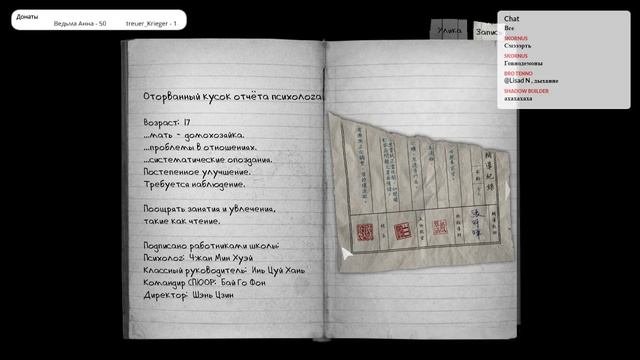 Донаты
Ведьма Анна - 50 treuer_Krieger - 1
Улика
Запись
Chat
Все
SKORNUS
Схозорть
SKORNUS
Говнодемоны
BRO TENNO
@Lisad N , дыхание
SHADOW BUILDER
ахахахаха
Оторванный кусок отчёта психолога
Возраст: 17
...мать - домохозяйка.
...проблемы в отношениях.
...систематические опоздания.
Постепенное улучшение.
Требуется наблюдение.
Поощрять занятия и увлечения,
такие как чтение.
Подписано работниками школы:
Психолог: Чжан Мин Хуэй
Классный руководитель: Инь Цуй Хань
Командир СПООР: Бай Го Фон
Директор: Шэнь Цзин
輔導紀錄